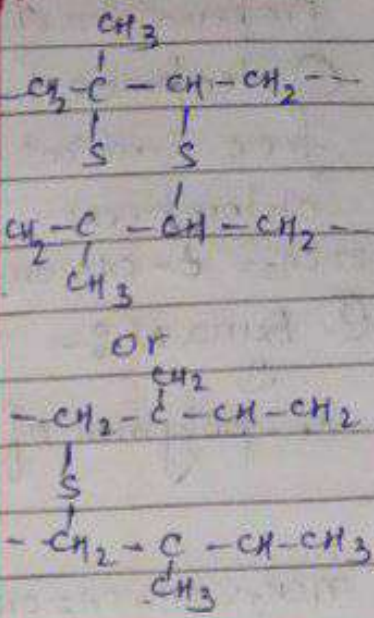 CH3
CH2-C - CH - CH2 ---
S S
CH2 - C - CH - CH2 -
CH3
or
CH2
- CH2 - C - CH - CH2
S
- CH2 - C - CH - CH3
CH3